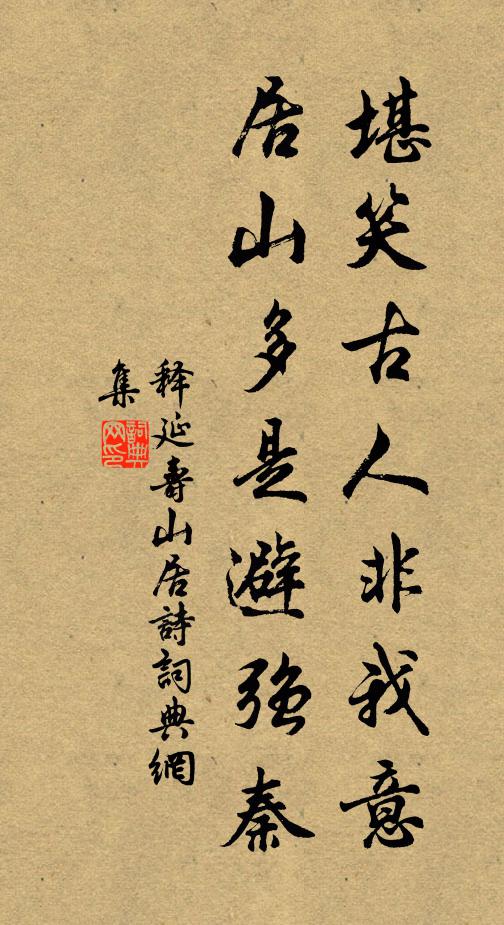 堪笑古人非我意
居山多是避強秦
释延壽山居詩詞典網
集
詞典
网印